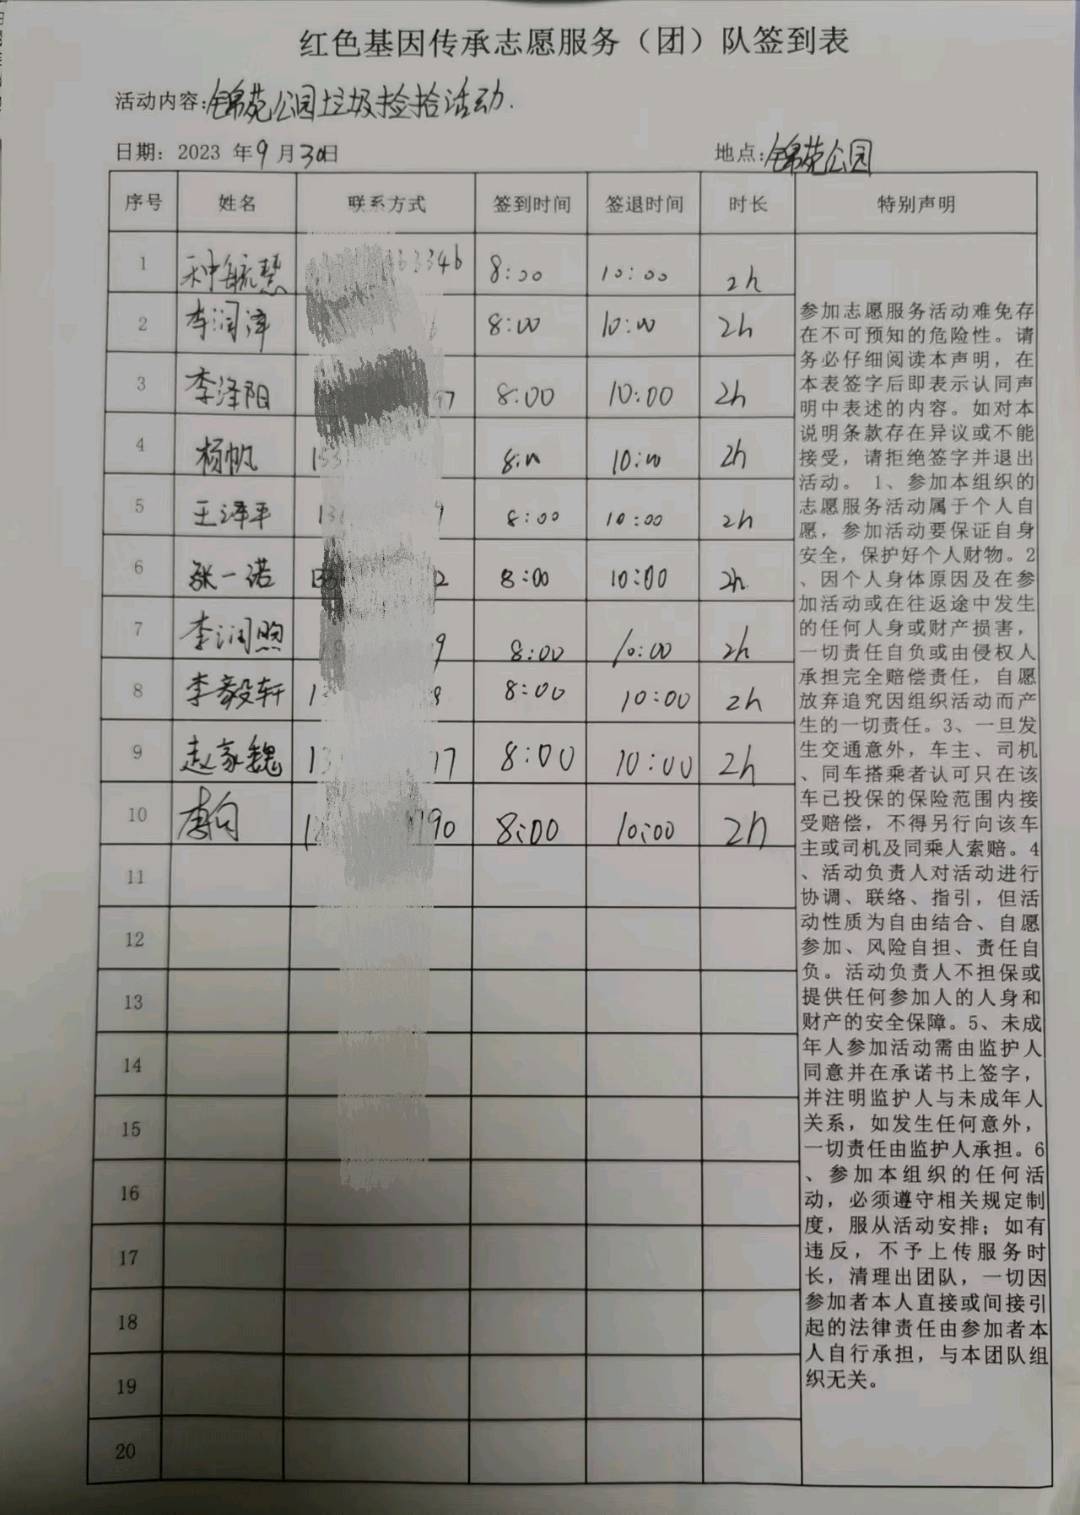 红色基因传承志愿服务（团）队签到表
活动内容：锦苑公园垃圾捡拾活动.
日期：2023 年9月30日 地点：锦苑公园
序号 姓名 联系方式 签到时间 签退时间 时长 特别声明
1 种毓慧 3346 8:00 10:00 2h
2 李润泽 8:00 10:00 2h
3 李泽阳 97 8:00 10:00 2h
4 杨帆 153 8:00 10:00 2h
5 王泽平 13 9 8:00 10:00 2h
6 张一诺 133 2 8:00 10:00 2h
7 李润煦 9 8:00 10:00 2h
8 李毅轩 1 8 8:00 10:00 2h
9 赵家魏 13 17 8:00 10:00 2h
10 李白 1 790 8:00 10:00 2h
11
12
13
14
15
16
17
18
19
20
参加志愿服务活动难免存
在不可预知的危险性。请
务必仔细阅读本声明，在
本表签字后即表示认同声
明中表述的内容。如对本
说明条款存在异议或不能
接受，请拒绝签字并退出
活动。 1、参加本组织的
志愿服务活动属于个人自
愿，参加活动要保证自身
安全，保护好个人财物。2
、因个人身体原因及在参
加活动或在往返途中发生
的任何人身或财产损害，
一切责任自负或由侵权人
承担完全赔偿责任，自愿
放弃追究因组织活动而产
生的一切责任。3、一旦发
生交通意外，车主、司机
、同车搭乘者认可只在该
车已投保的保险范围内接
受赔偿，不得另行向该车
主或司机及同乘人索赔。4
、活动负责人对活动进行
协调、联络、指引，但活
动性质为自由结合、自愿
参加、风险自担、责任自
负。活动负责人不担保或
提供任何参加人的人身和
财产的安全保障。5、未成
年人参加活动需由监护人
同意并在承诺书上签字，
并注明监护人与未成年人
关系，如发生任何意外，
一切责任由监护人承担。6
、参加本组织的任何活
动，必须遵守相关规定制
度，服从活动安排；如有
违反，不予上传服务时
长，清理出团队，一切因
参加者本人直接或间接引
起的法律责任由参加者本
人自行承担，与本团队组
织无关。